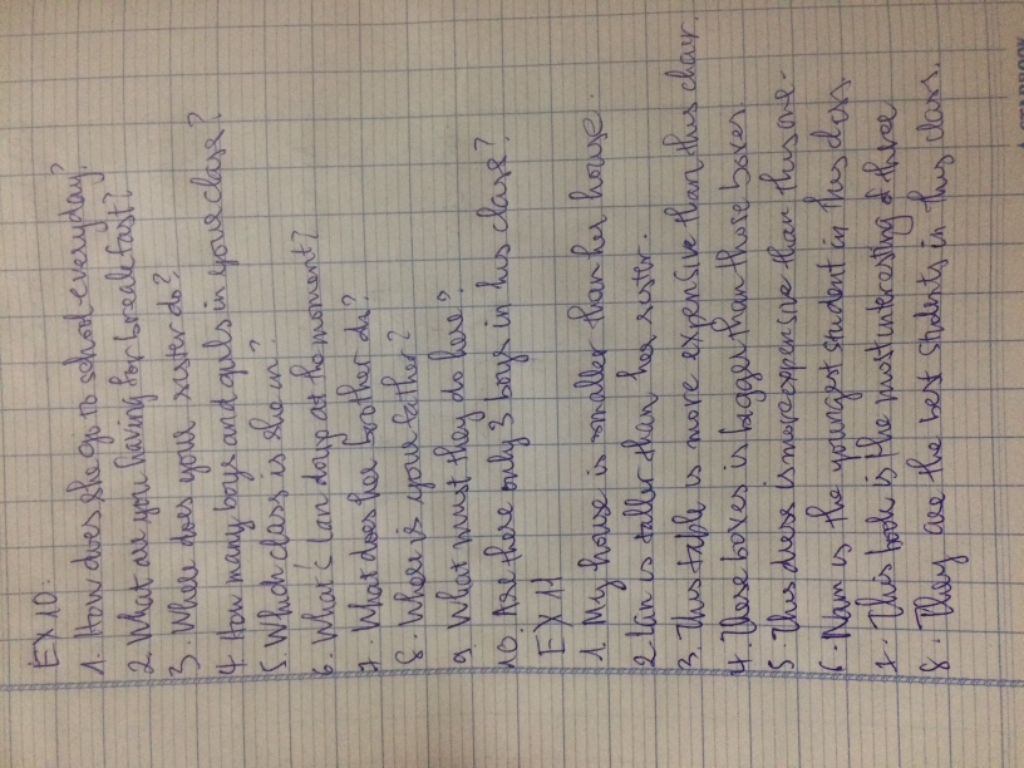 EX 10:
1. How does she go to school everyday?
2. What are you having for breakfast?
3. Where does your sister do?
4. How many boys and girls in your class?
5. Which class is she in?
6. What's Lan doing at the moment?
7. What does her brother do?
8. Where is your father?
9. What must they do here?
10. Are there only 3 boys in his class?
EX 11
1. My house is smaller than her house.
2. Lan is taller than her sister.
3. This table is more expensive than this chair.
4. These boxes is bigger than those boxes.
5. This dress is more expensive than this one.
6. Nam is the youngest student in this class.
7. This book is the most interesting of three
8. They are the best students in this class.